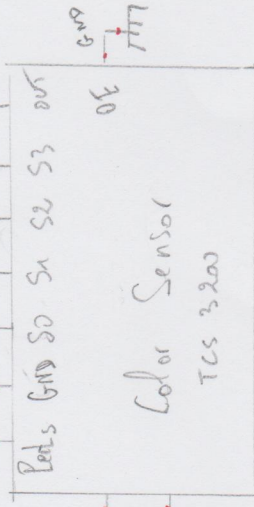 GND
GND S0 S1 S2 S3 OUT
OE
Color Sensor
TCS 3200